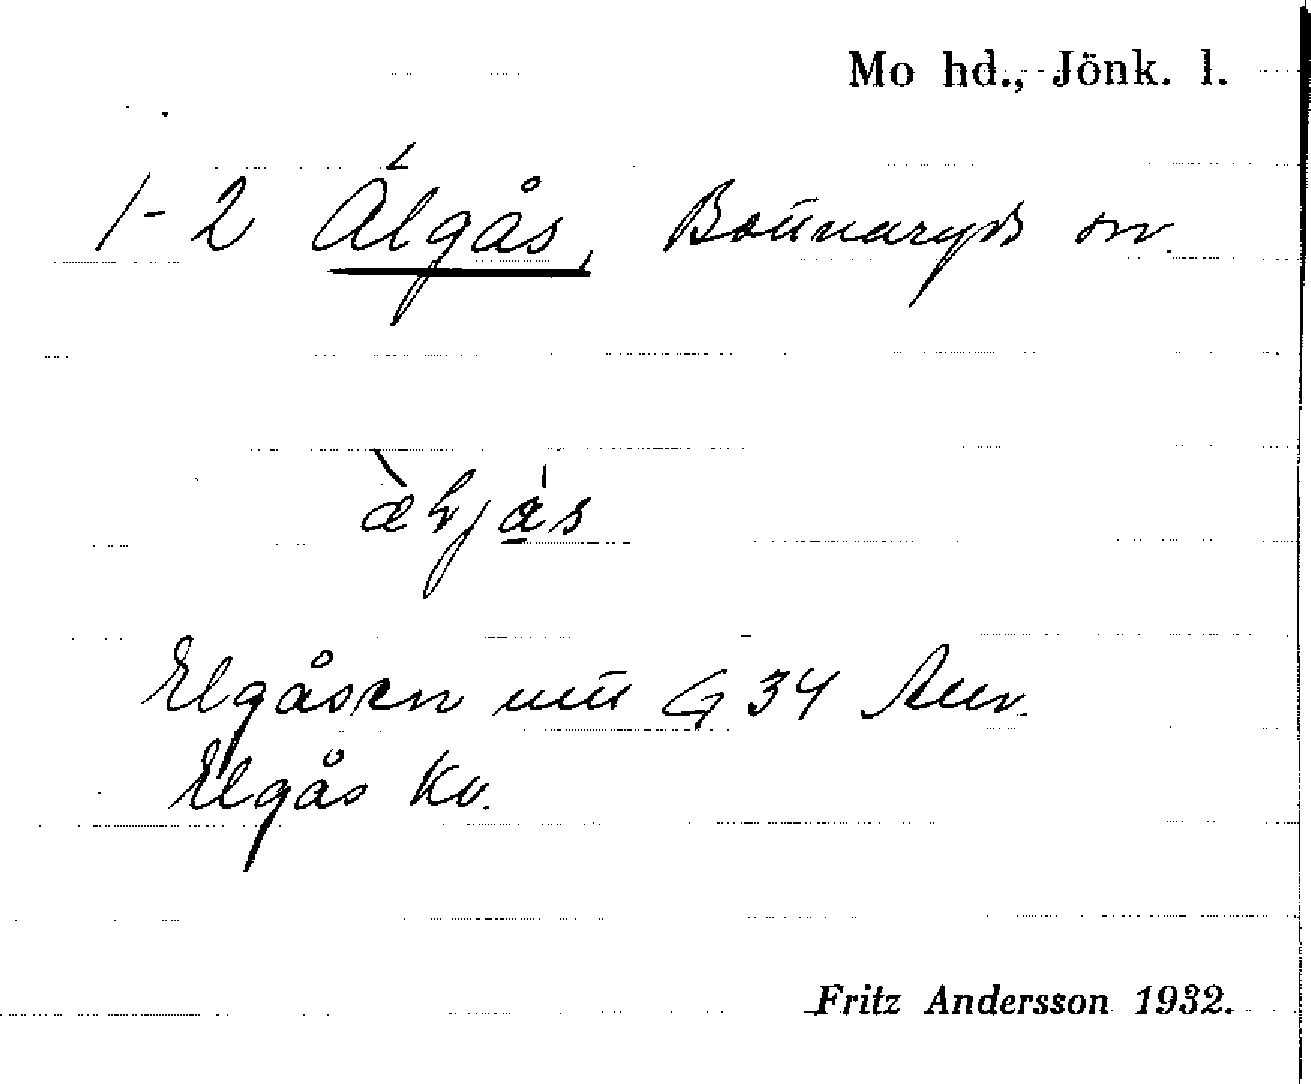 Mo hd., Jönk. l.
1-2 Älgås, Bottnaryds sn.
Elgåsen utu G 34 Avr.
Elgås Kv.
Fritz Andersson 1932.